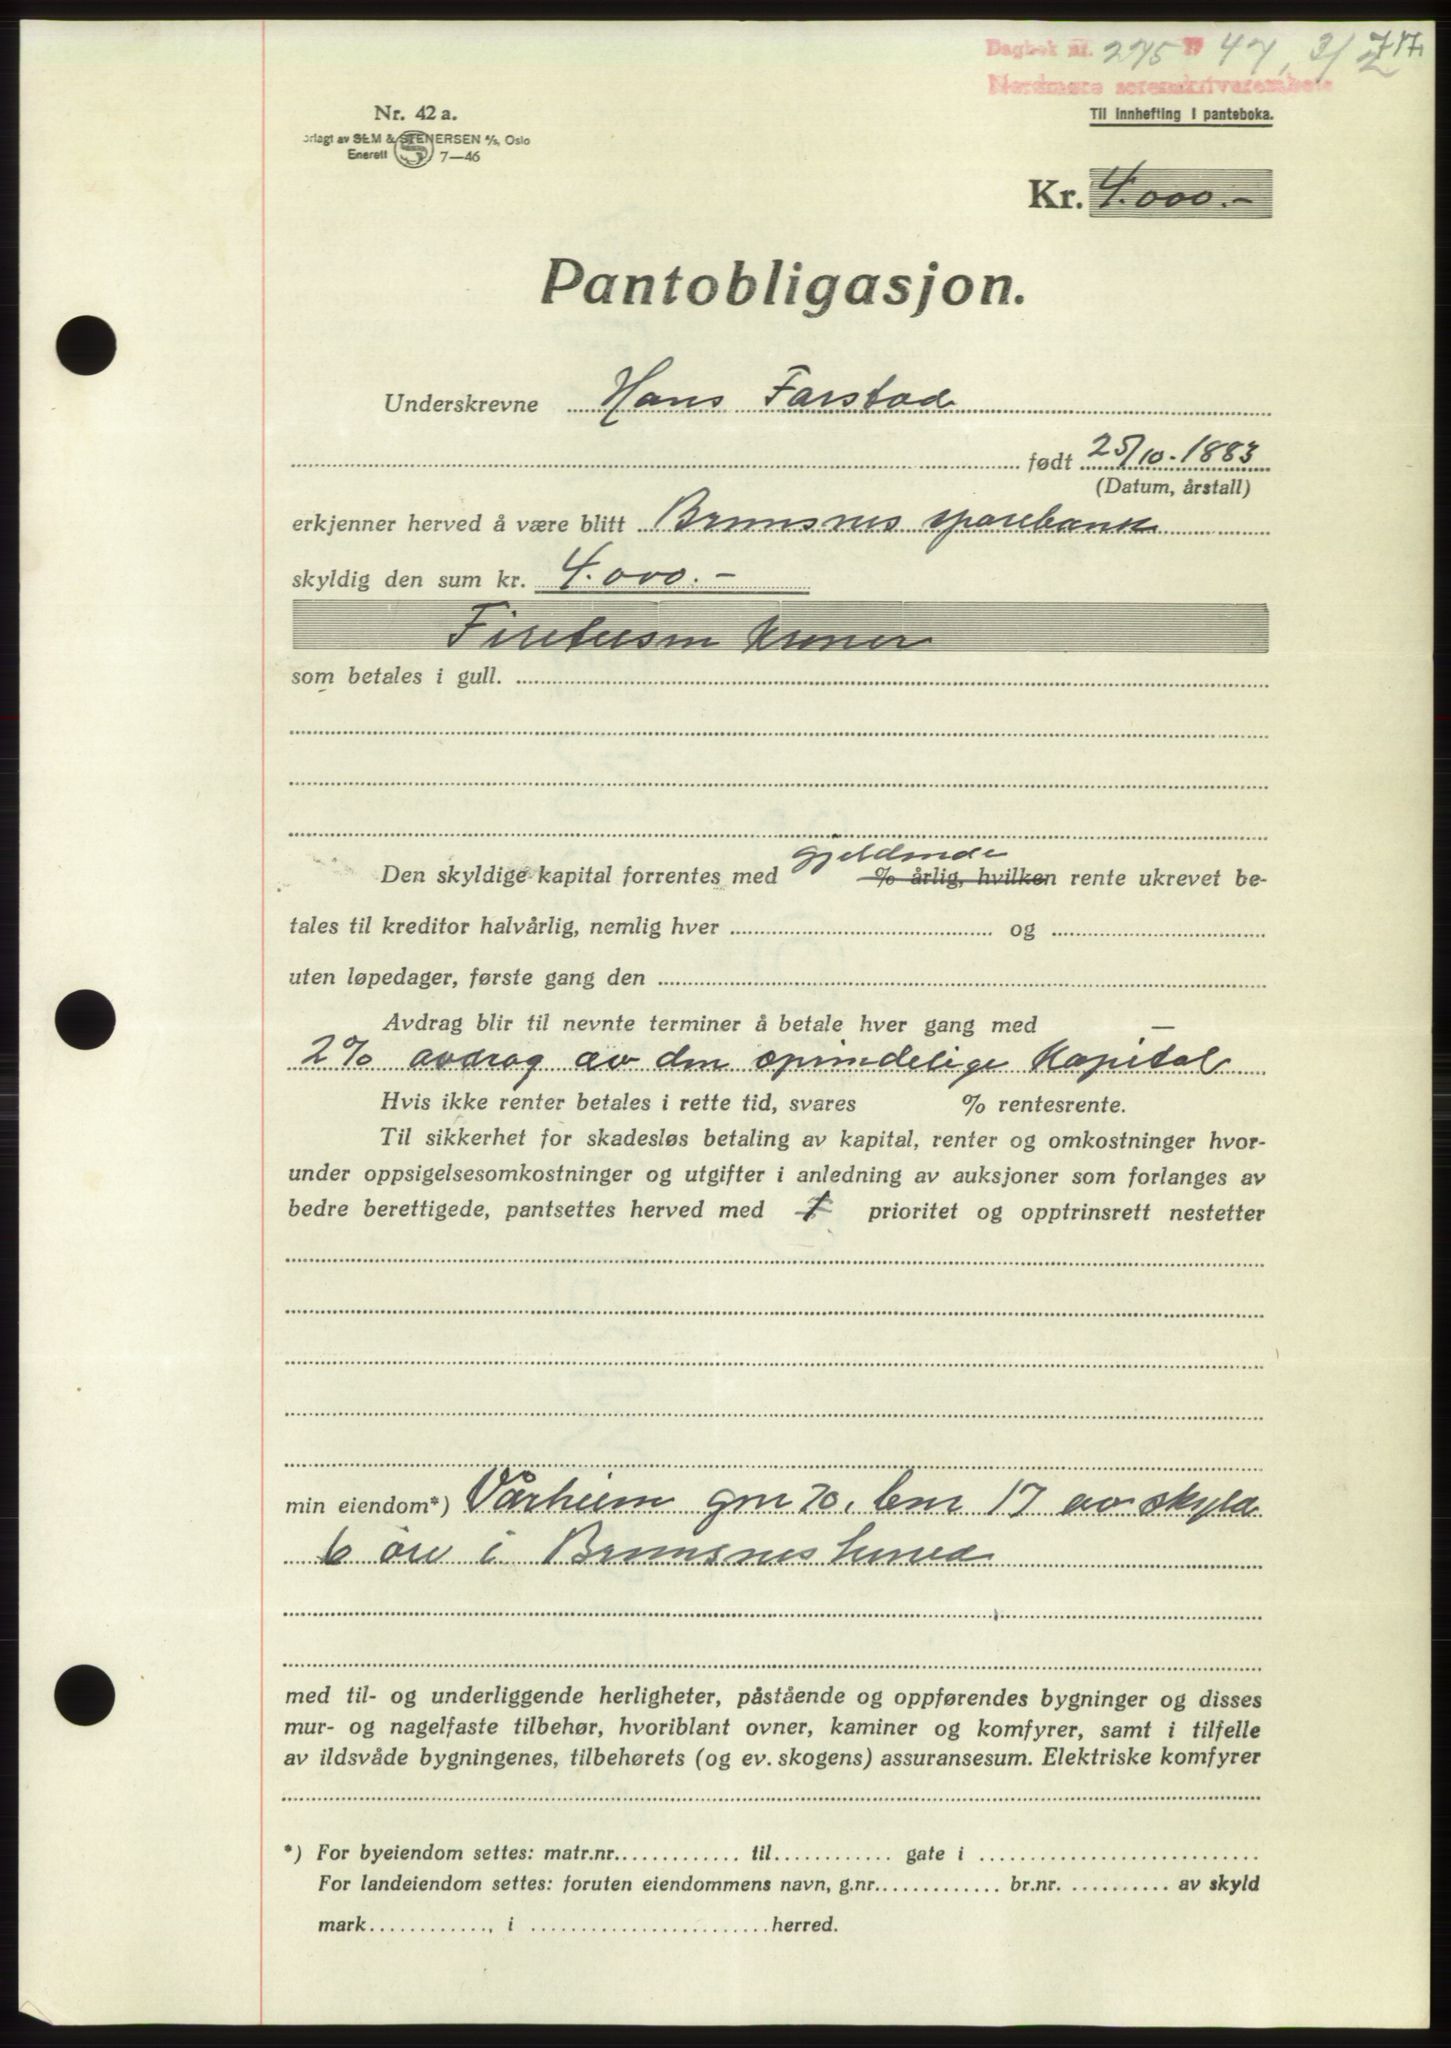 Dagbok nr. 275 19 47, 3/2 717.
Nordmøre sorenskriverembete
Til innhefting i panteboka.
Nr. 42 a.
orlagt av SEM & STENERSEN A/S, Oslo
Enerett 7—46
Kr. 4.000.-
Pantobligasjon.
Underskrevne Hans Farstad
født 25/10.1883
(Datum, årstall)
erkjenner herved å være blitt Bremsnes sparebank
skyldig den sum kr. 4.000.-
Firetusen kroner
som betales i gull.
gjeldende
Den skyldige kapital forrentes med % årlig, hvilken rente ukrevet be-
tales til kreditor halvårlig, nemlig hver og
uten løpedager, første gang den
Avdrag blir til nevnte terminer å betale hver gang med —
2% avdrag av den oprindelige kapital
Hvis ikke renter betales i rette tid, svares % rentesrente.
Til sikkerhet for skadesløs betaling av kapital, renter og omkostninger hvor-
under oppsigelsesomkostninger og utgifter i anledning av auksjoner som forlanges av
bedre berettigede, pantsettes herved med 1 prioritet og opptrinsrett nestetter
min eiendom*) Vårheim gnr 70. bnr 17 av skyld
6 øre i Bremsnes herred
med til- og underliggende herligheter, påstående og oppførendes bygninger og disses
mur- og nagelfaste tilbehør, hvoriblant ovner, kaminer og komfyrer, samt i tilfelle
av ildsvåde bygningenes, tilbehørets (og ev. skogens) assuransesum. Elektriske komfyrer
*) For byeiendom settes: matr.nr. til gate i
For landeiendom settes: foruten eiendommens navn, g.nr. br.nr. av skyld
mark , i herred.